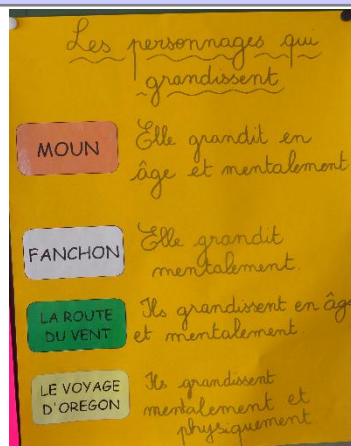 Les personnages qui
grandissent
MOUN
Elle grandit en
âge et mentalement
FANCHON
Elle grandit
mentalement.
LA ROUTE
DU VENT
Ils grandissent en âge
et mentalement.
LE VOYAGE
D'OREGON
Ils grandissent
mentalement et
physiquement